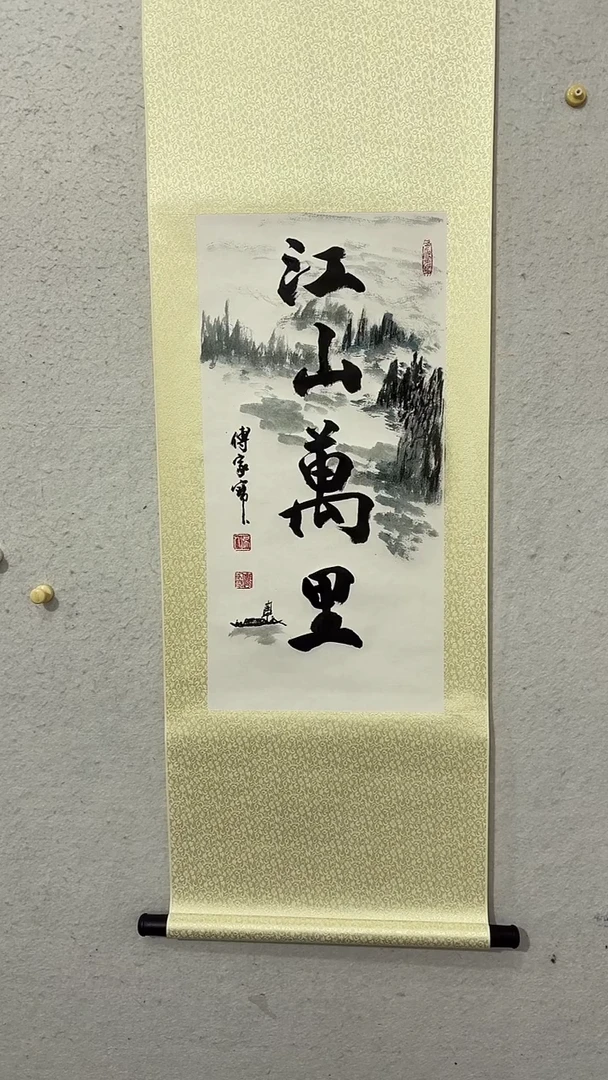 江山萬里
傅家寶